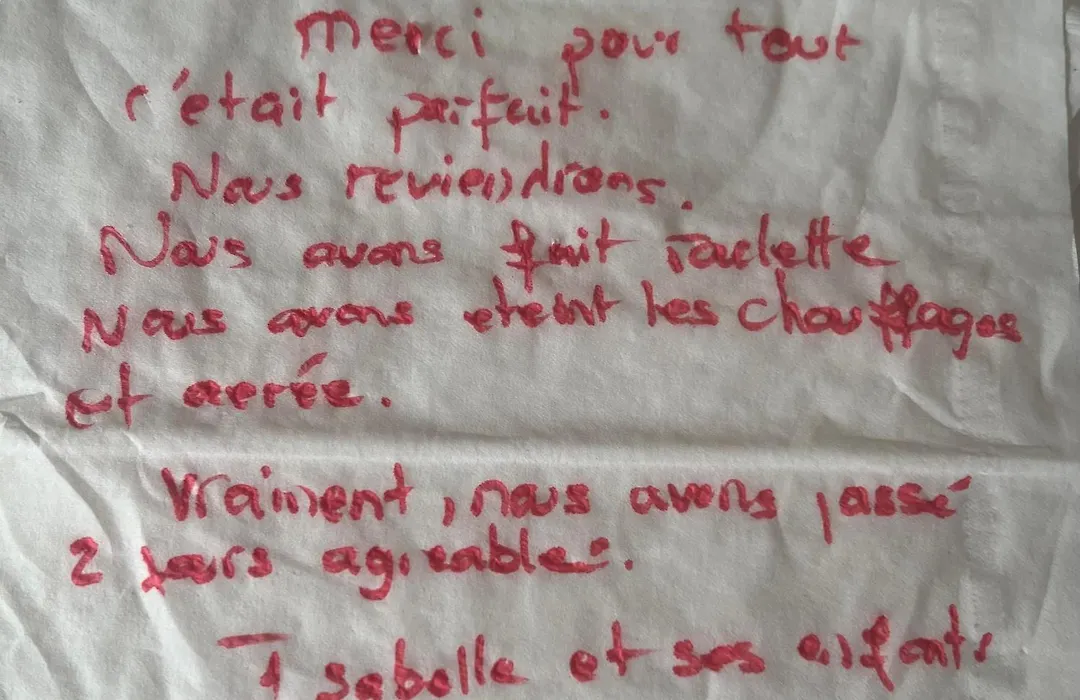 Merci pour tout
c'etait parfait.
Nous reviendrons.
Nous avons fait raclette
Nous avons eteint les chauffages
et aerée.
Vraiment, nous avons passé
2 jours agreables.
Isabelle et ses enfants